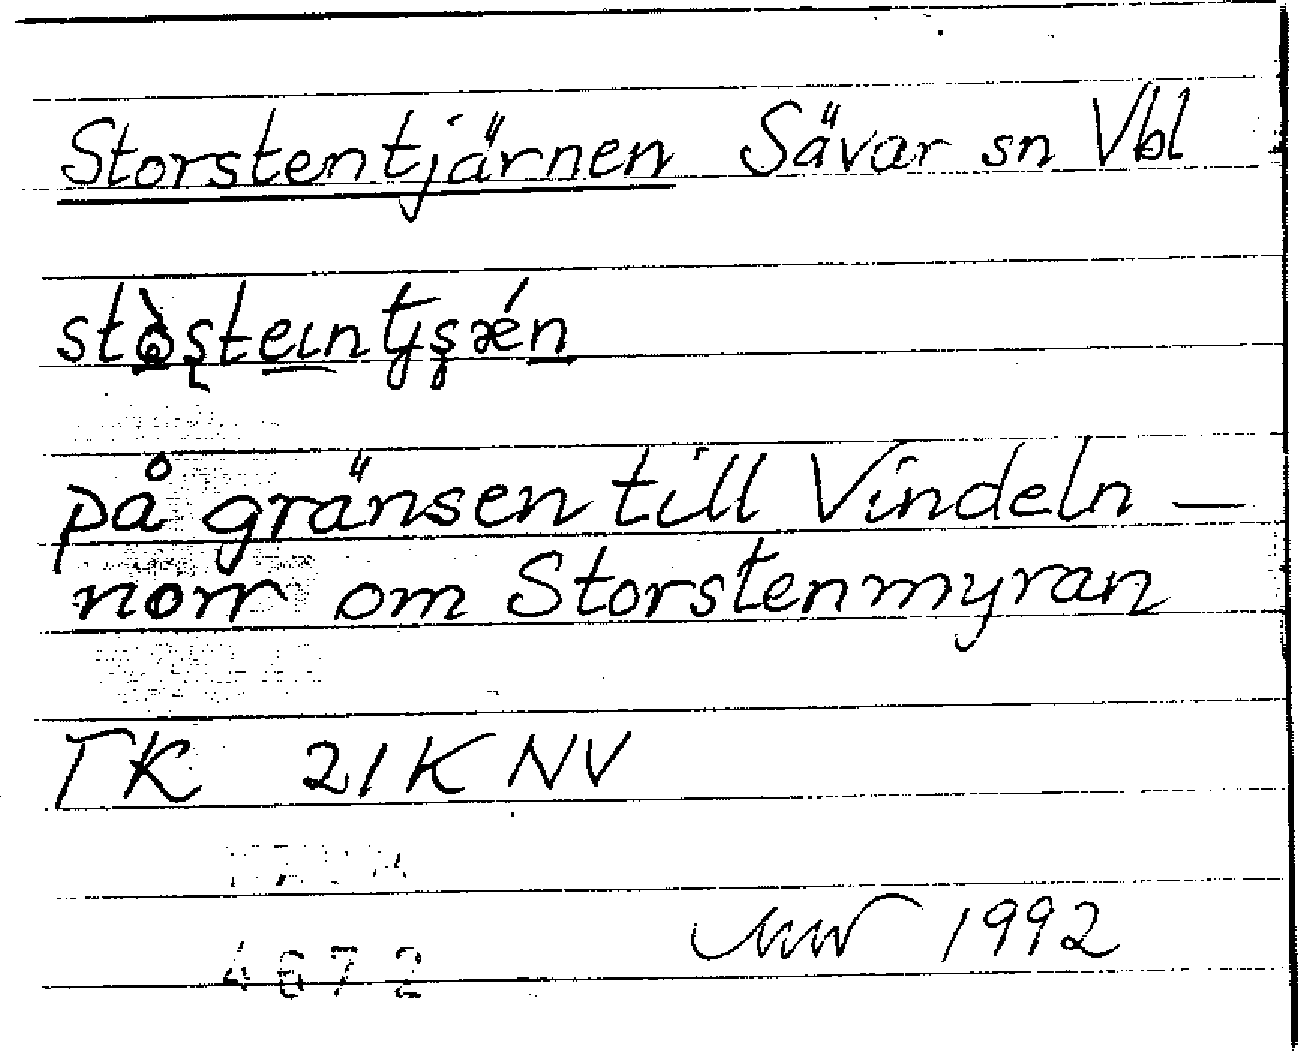 Storstentjärnen Sävar sn Vbl
på gränsen till Vindeln —
norr om Storstenmyran
TK 21K NV
1992
4672